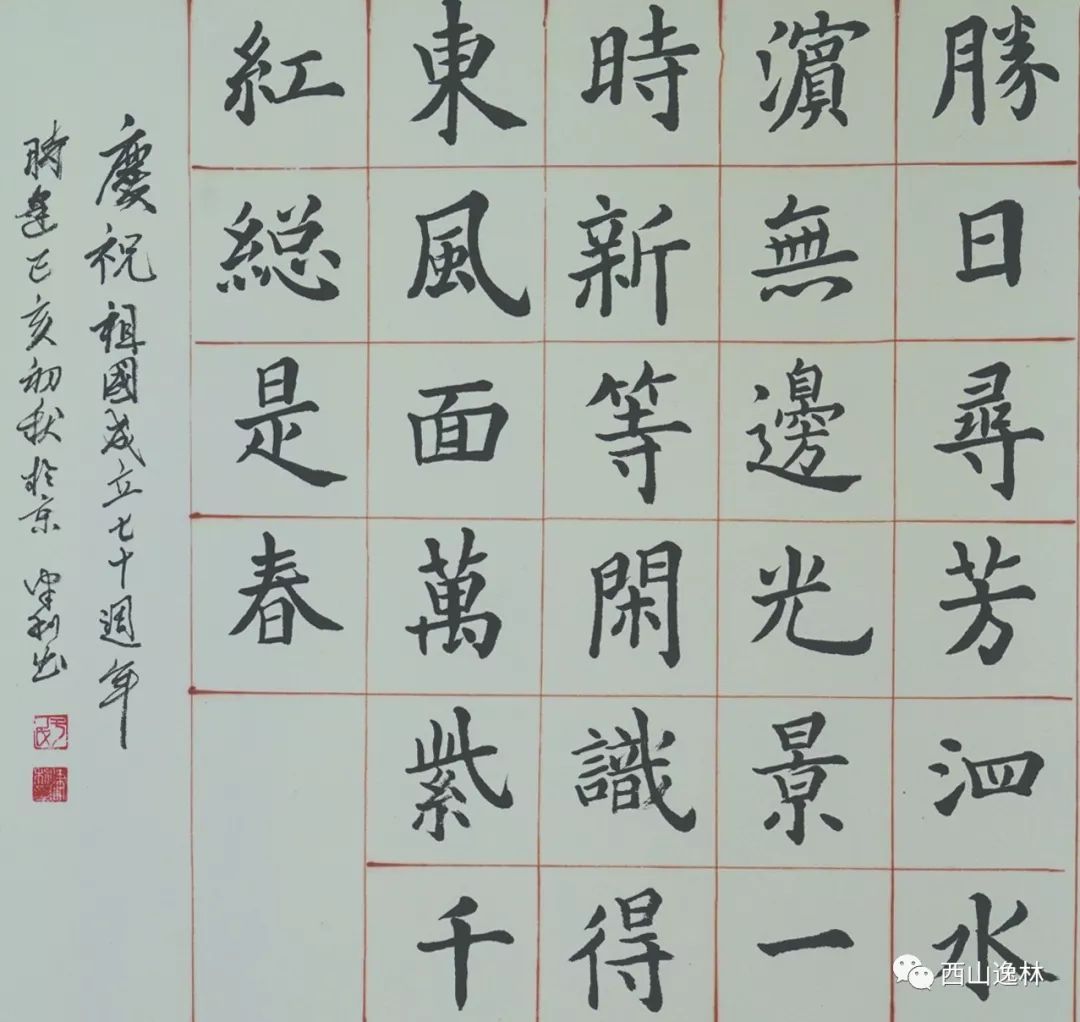 勝日尋芳泗水
濵無邊光景一
時新等閑識得
東風面萬紫千
紅総是春
慶祝祖國成立七十週年
時逢己亥初秋於京
西山逸林